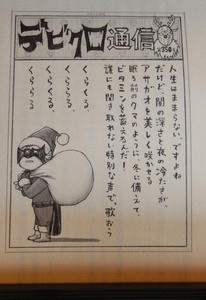 デビクロ通信
350
人生はままらない、ですよね
だけど、闇の深さと夜の冷たさが、
アサガオを美しく咲かせる
眠る前のクマのように、冬に備えて、
ビタミンを蓄えるんだ！
誰にも聞き取れない特別な声で、歌おう
くらくる
くららる、
くらくる、
くららる